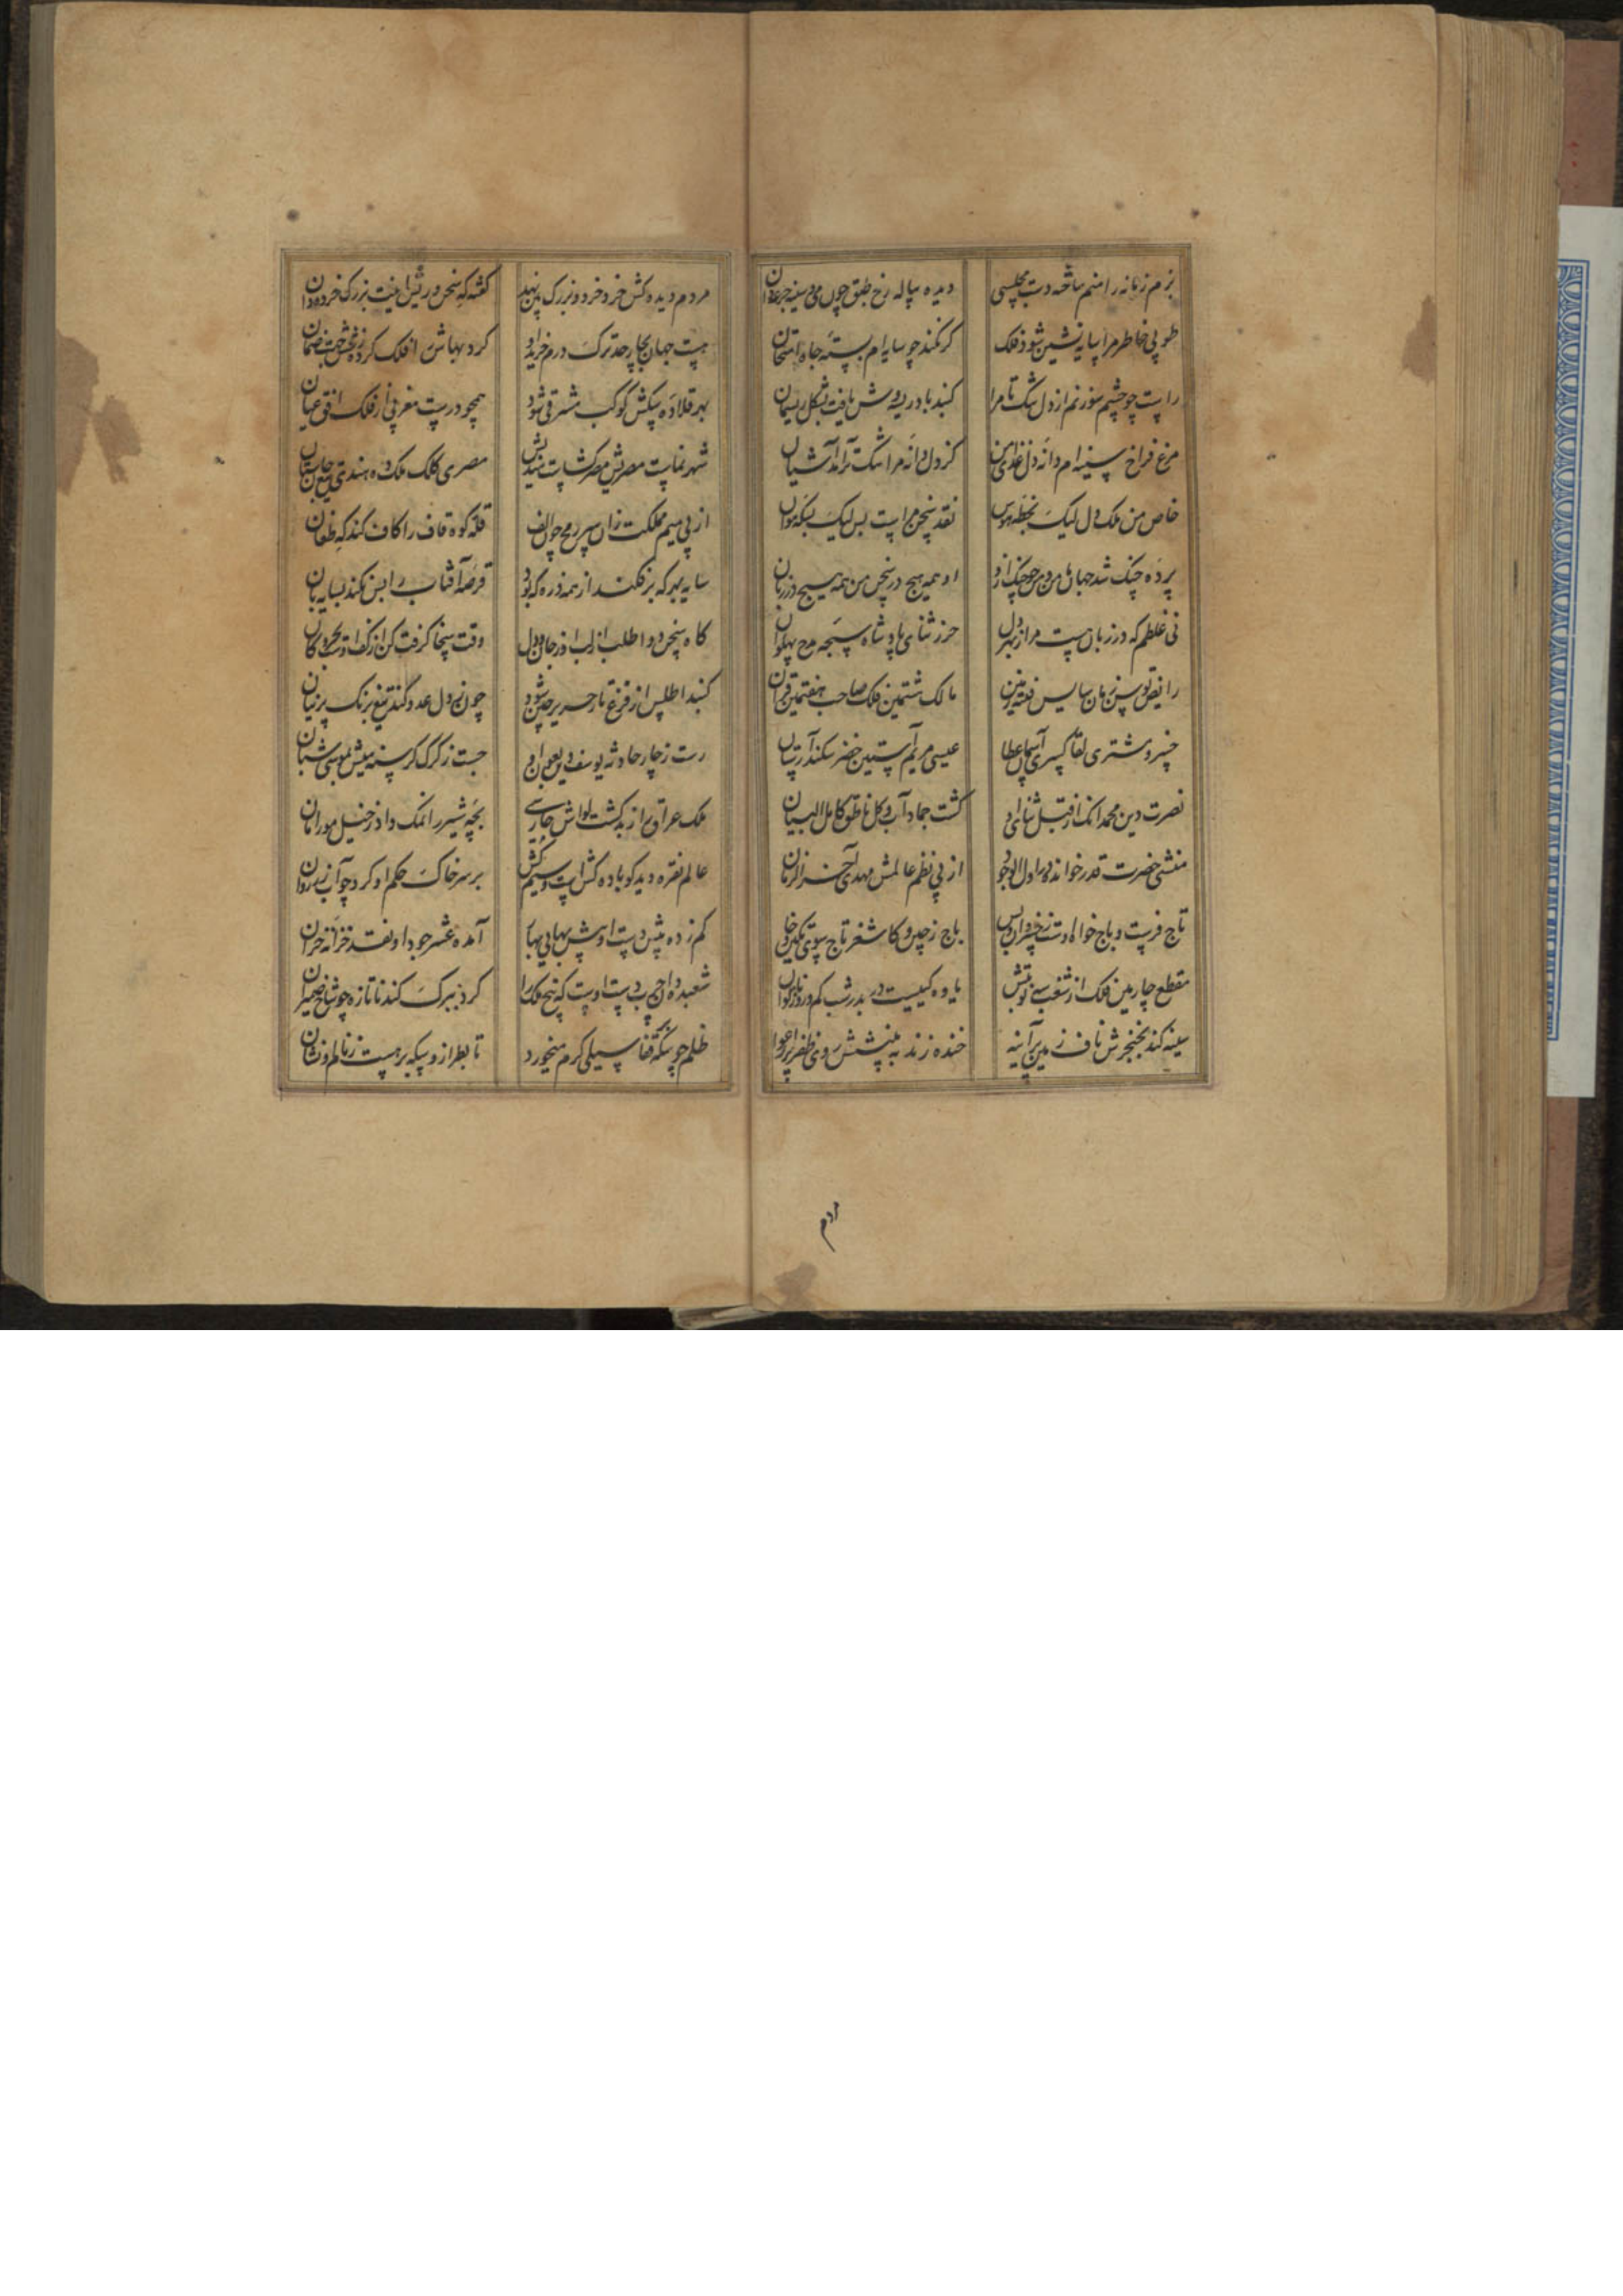 بزم زمانه را منم ساخته دست مجلسی
دیده پیاله رخ طبق چون می و سینه جرعه‌دان
طوبی خاطر مرا سایه نشین شود فلک
گر نکند چو سایه‌ام بسته جاه امتحان
راست چو چشم سوزنم از دل تنگ تا مرا
گنبد بادریسه‌وش یافت بشکل ریسمان
مرغ فراخ سینه‌ام دانه دل غذای من
کز دل دانه مرا تنگ‌تر آمد آشیان
خاص من ملک دل لیک بخطبه هوس
نقد سخن مراست بس لیک بسکه هوان
پرده چنگ شد جهان با من و من چو چنگ ازو
او همه هیچ در سخن من همه هیچ در زبان
نی غلطم که در زبان هست مرا ز بهر دل
حرز ثنای پادشاه سبحه مدح پهلوان
رایض توسن زمان سایس فتنه زمین
مالک هشتمین فلک صاحب هفتمین قران
خسرو مشتری لقا کسری آسمان عطا
عیسی مریم آستین خضر سکندر آستان
نصرت دین محمد آنک از قبل ثنای او
گشت جماد آب و گل ناطق کامل البیان
منشی حضرت قدر خوانده ورا اول الوجود
از پی نظم عالمش مهدی آخر الزمان
تاج فرست و باج خواه اوست ز خسروان و بس
باج ز چین و کاشغر تاج بسوی تکین و خان
مقطع چارمین فلک از شغب سه نوبتش
یاوه گیست در بدر شب کم و روز ناتوان
سینه کند بخنجرش ناف زمین بر آینه
خنده زند به بینشش روی ظفر بر ارغوان
مردم
مردم دیده کش خرد خرد و بزرگ می‌نهد
گفته که سخن وریش اینت بزرگ خرده‌دان
هست جهان بچار حد ترک درم خرید او
کرد بهاش از فلک کرده بخش جهت ضمان
بهر قلاده سگش کوکب مشرقی شود
همچو درست مغربی از فلک افق عیان
شهر نماست مصرش مصر گشاست هندیش
مصری کلک ملک ده هندی تیغ جان‌ستان
از پی میم مملکت زان سر رمح چون الف
قله کوه قاف را کاف کند که طعان
سایه هر که برفکند از همه ذره که بود
قرصه آفتاب را بس نکند بسایه‌بان
گاه سخن دوا طلب از لب او ز جان و دل
وقت سخا گرفت کن از کف او ز بحر و کان
گنبد اطلس از فزع تار حریر چین شود
چون ز دل عدو کند تیغ برنگ پرنیان
رست ز چار حادثه یوسف دین بعون او
جست ز گرگ گرسنه میش بموسی شبان
ملک عراق باز بد گشت لواش حارسی
بچه شیر را نمک داد ز خیل مور امان
عالم نقره دید کو باده کش است و سیم کش
بر سر خاک حکم او کرد چو آب زر روان
کم زده پیش دست او شش بهای بی بها
آمده عشر جود او نقد خزانه خزان
شعبده وار چرب دست اوست که نخ فلک را
کرد ببرگ گندنا تازه چو شاخ ضیمران
ظلم چو سکه قفا سیلی گرم میخورد
تا بطراز و سکه بر هست ز نام او نشان